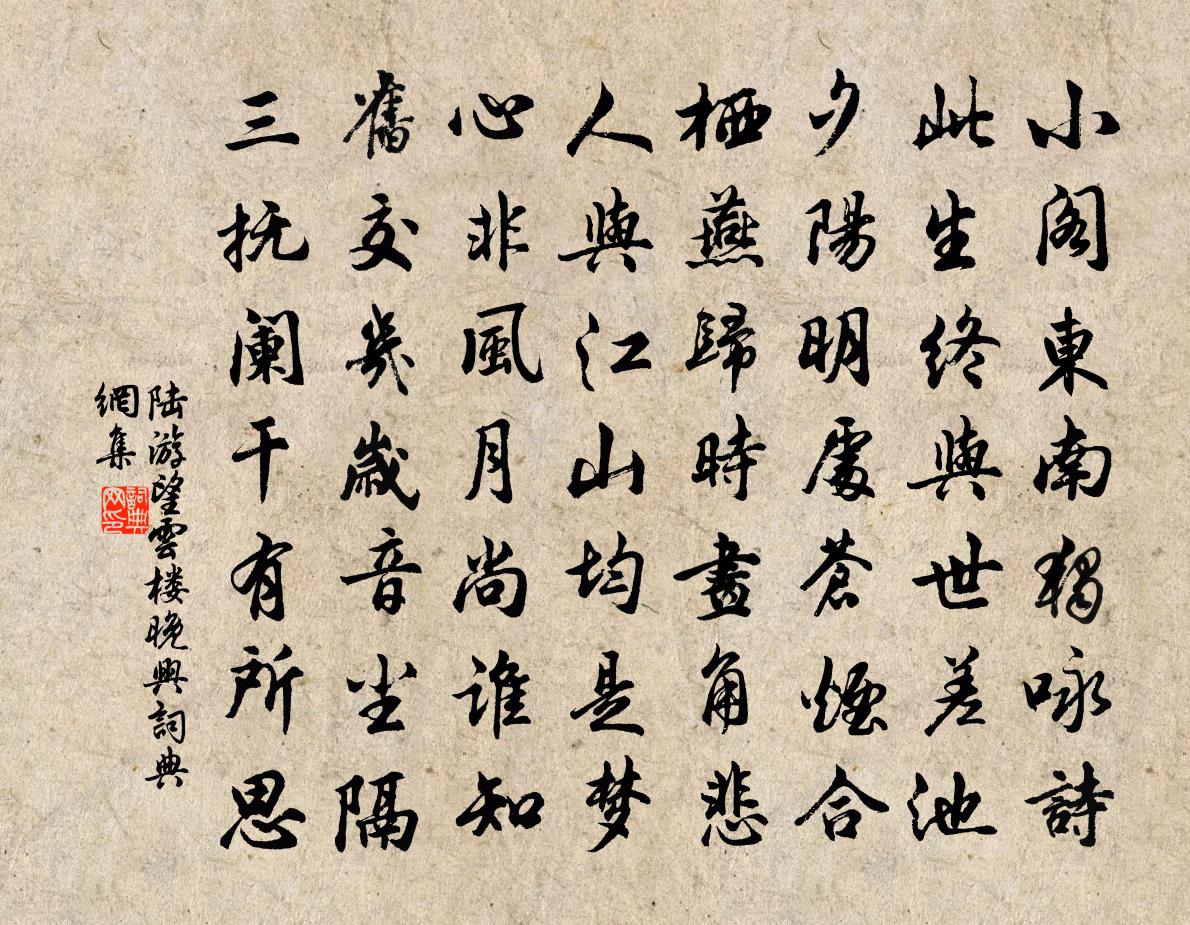 小閣東南獨咏詩
此生終與世差池
夕陽明處蒼煙合
栖燕歸時畫角悲
人與江山均是夢
心非風月尚誰知
舊交幾歲音尘隔
三抚阑干有所思
陆游望雲楼晚興詞典
網集
詞典
网印